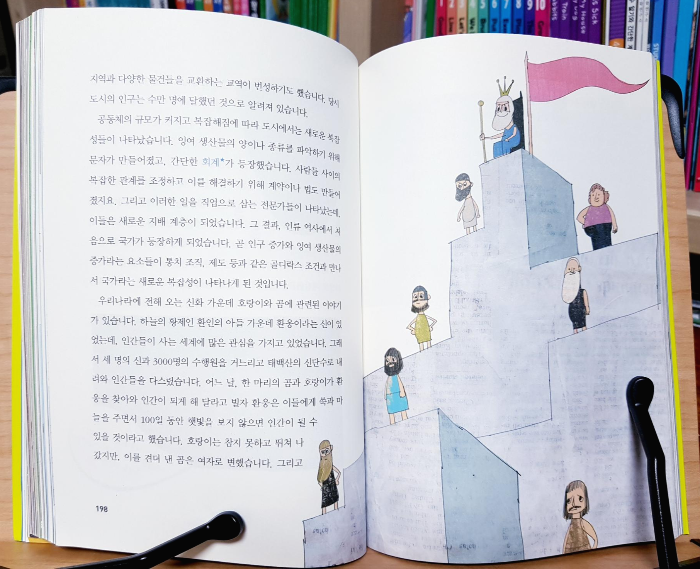 지역과 다양한 물건들을 교환하는 교역이 번성하기도 했습니다. 당시
도시의 인구는 수만 명에 달했던 것으로 알려져 있습니다.
공동체의 규모가 커지고 복잡해짐에 따라 도시에서는 새로운 복잡
성들이 나타났습니다. 잉여 생산물의 양이나 종류를 파악하기 위해
문자가 만들어졌고, 간단한 회계*가 등장했습니다. 사람들 사이의
복잡한 관계를 조정하고 이를 해결하기 위해 계약이나 법도 만들어
졌지요. 그리고 이러한 일을 직업으로 삼는 전문가들이 나타났는데,
이들은 새로운 지배 계층이 되었습니다. 그 결과, 인류 역사에서 처
음으로 국가가 등장하게 되었습니다. 곧 인구 증가와 잉여 생산물의
증가라는 요소들이 통치 조직, 제도 등과 같은 골디락스 조건과 만나
서 국가라는 새로운 복잡성이 나타나게 된 것입니다.
우리나라에 전해 오는 신화 가운데 호랑이와 곰에 관련된 이야기
가 있습니다. 하늘의 황제인 환인의 아들 가운데 환웅이라는 신이 있
었는데, 인간들이 사는 세계에 많은 관심을 가지고 있었습니다. 그래
서 세 명의 신과 3000명의 수행원을 거느리고 태백산의 신단수로 내
려와 인간들을 다스렸습니다. 어느 날, 한 마리의 곰과 호랑이가 환
웅을 찾아와 인간이 되게 해 달라고 빌자 환웅은 이들에게 쑥과 마
늘을 주면서 100일 동안 햇빛을 보지 않으면 인간이 될 수
있을 것이라고 했습니다. 호랑이는 참지 못하고 뛰쳐 나
갔지만, 이를 견뎌 낸 곰은 여자로 변했습니다. 그리고
198